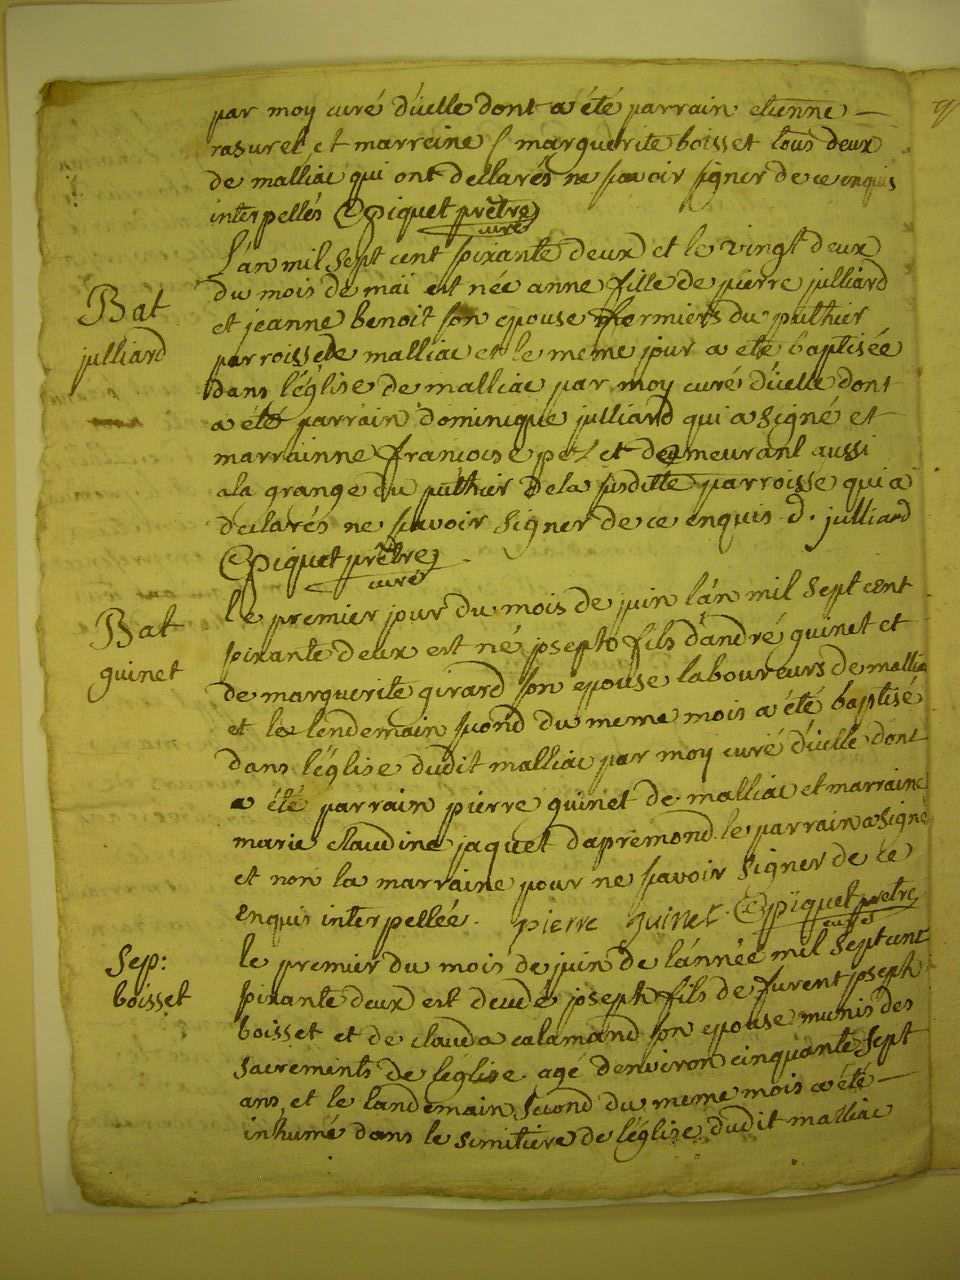 par moy curé d'icelle dont a été parrain etienne
rasurel et marreine marguerite boisset tous deux
de malliac qui ont dellarés ne sçavoir signer de ce enquis
interpellés Piquet prêtre
curé
L'an mil sept cent soixante deux et le vingt deux
du mois de mai est née anne fille de pierre julliard
Bat
et jeanne benoit son epouse fermiers du puthier
julliard
parroisse de malliac et le meme jour a eté baptisée
dans l'église de malliac par moy curé d'icelle dont
a été parrain dominique julliard qui a signé et
marrainne francoise demeurant aussi
a la grange du puthier de la susditte parroisse qui a
declarés ne sçavoir signer de ce enquis d. julliard
Piquet prêtre
curé
le premier jour du mois de juin l'an mil sept cent
Bat
soixante deux est né joseph fils d'andré guinet et
guinet
de marguerite girard son epouse laboureurs de mallia
et le lendemain second du meme mois a été baptisé
dans l'église dudit malliac par moy curé d'icelle dont
a été parrain pierre guinet de malliac et marraine
marie claudine jaquet d'apremond. le parrain a signé
et non la marraine pour ne sçavoir signer de ce
enquis interpellée. pierre guinet. Piquet prêtre
curé
Sep:
le premier du mois de juin de l'année mil sept cent
boisset
soixante deux est decedé joseph fils de joseph
boisset et de clauda calamand son epouse munis des
sacrements de l'église. agé d'environ cinquante sept
ans, et le landemain second du meme mois a été
inhumé dans le simitiere de l'église dudit malliac